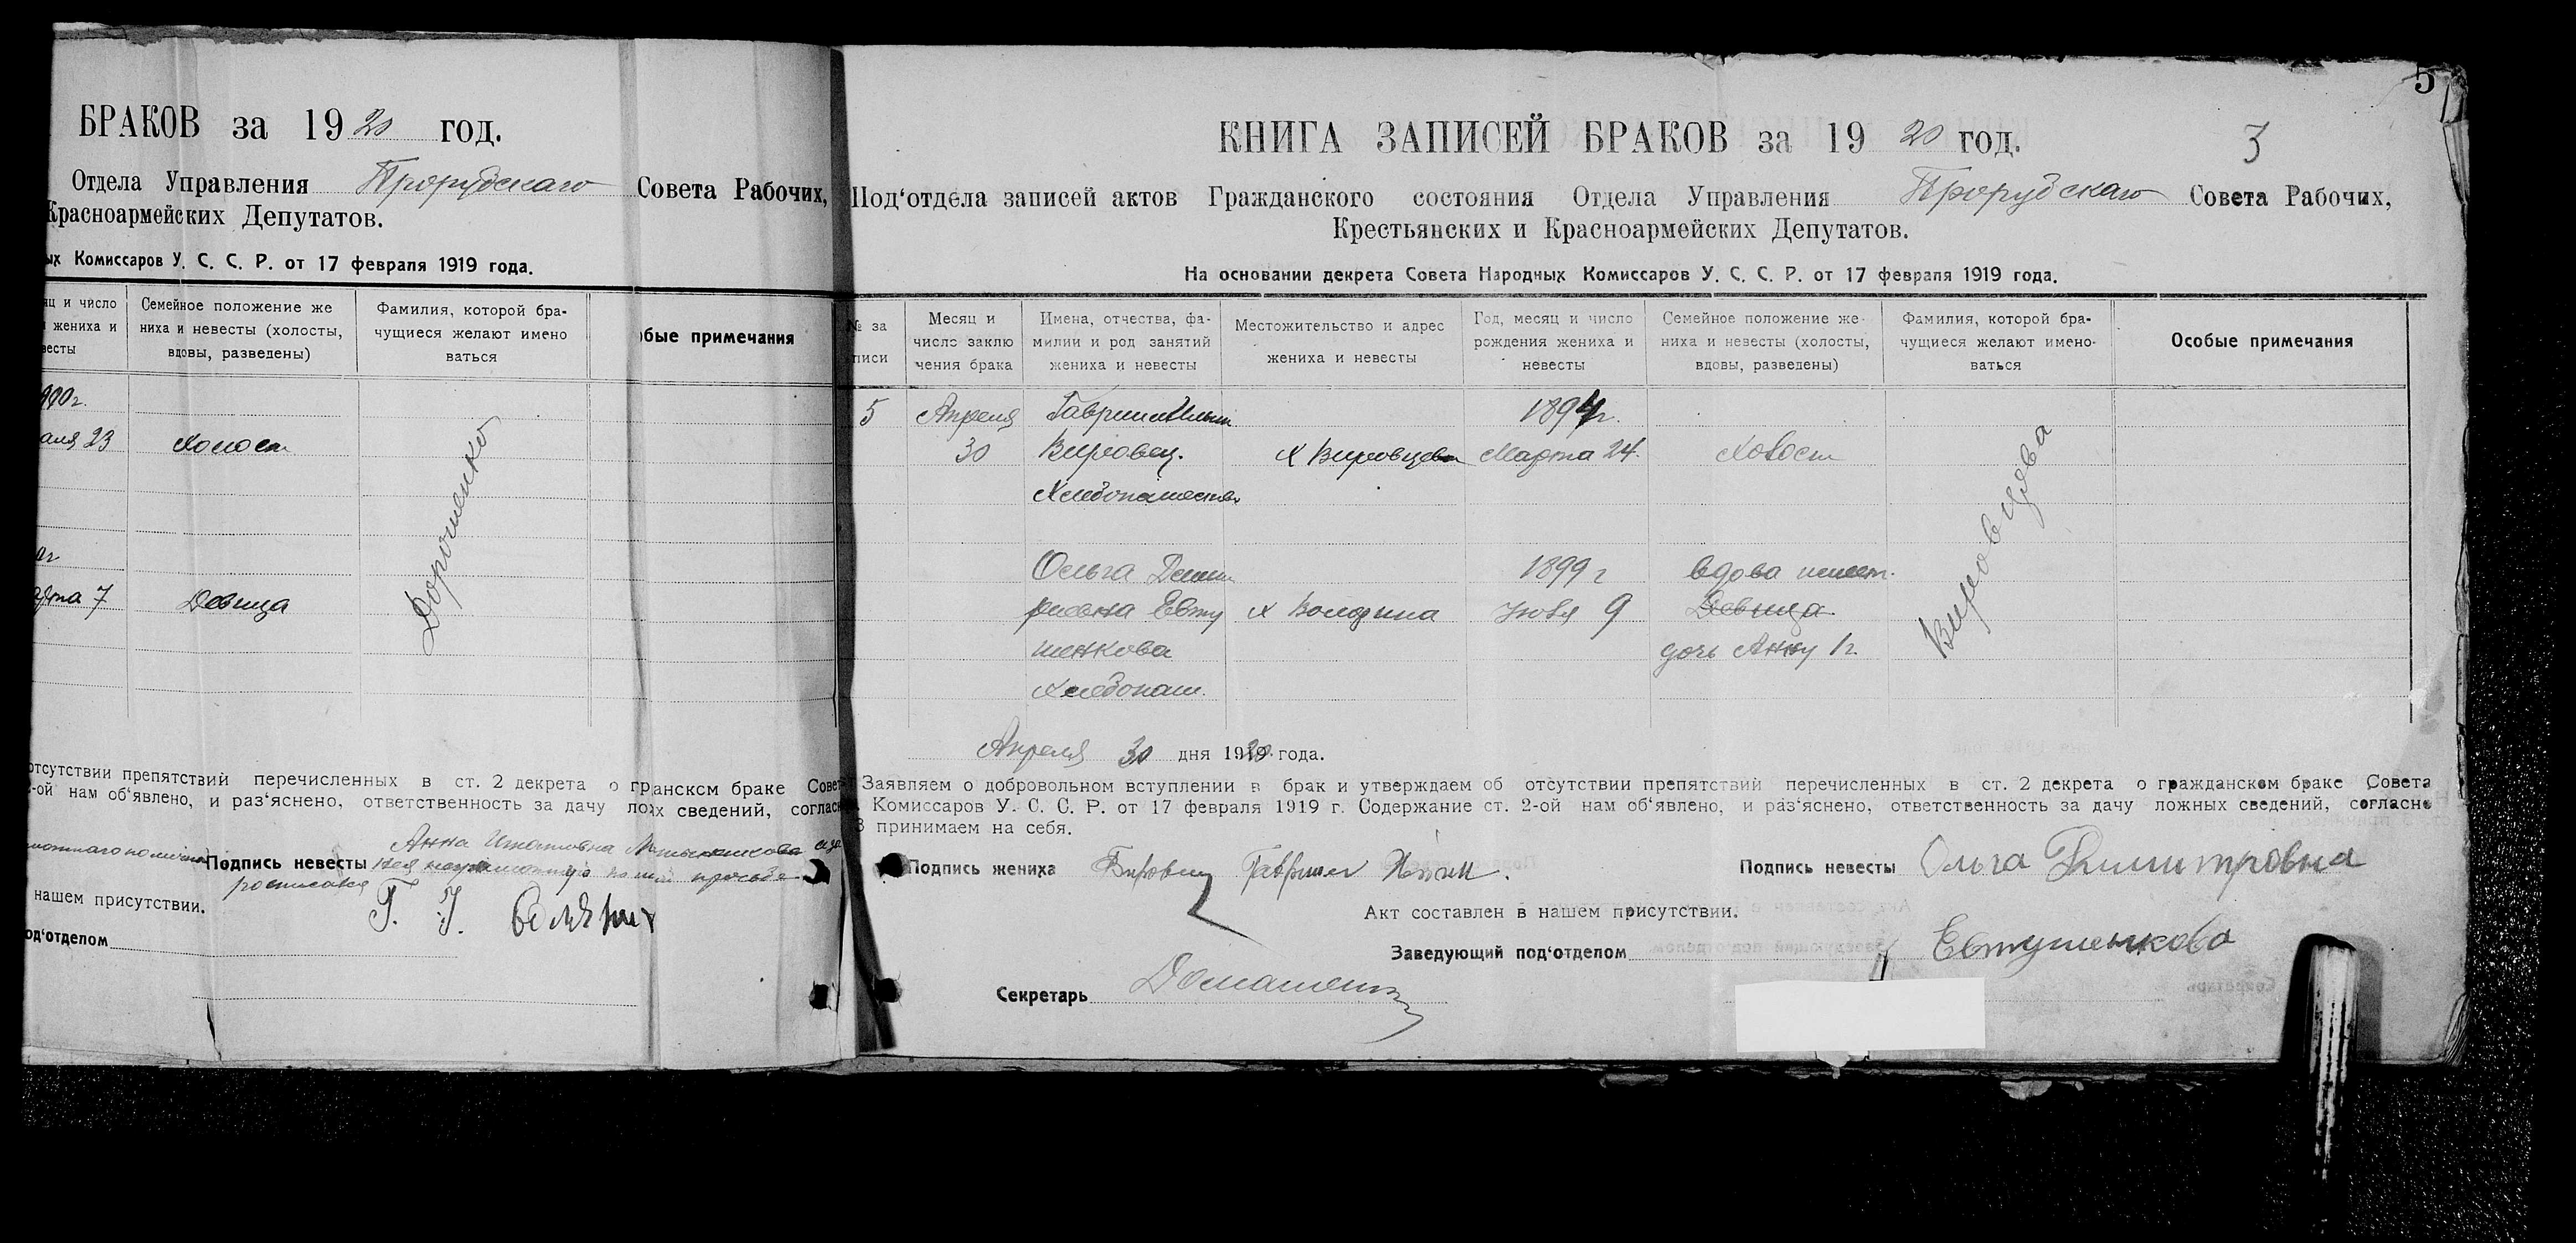 БРАКОВ за 1920 год.
Отдела Управления Прорубскаго Совета Рабочих,
Красноармейских Депутатов.
ых Комиссаров У. С. С. Р. от 17 февраля 1919 года.
яц и число
жениха и
весты
Семейное положение же
ниха и невесты (холосты,
вдовы, разведены)
Фамилия, которой бра-
чущиеся желают имено
ваться
обые примечания
900г.
аля 23 Холост
Дорошенко
рта 7 Девица
отсутствии препятствий перечисленных в ст. 2 декрета о гранском браке Сове
2-ой нам об‘явлено, и раз‘яснено, ответственность за дачу лож сведений, соглас
Подпись невесты Анна
росписался
нашем присутствии.
од‘отделом
5
3
КНИГА ЗАПИСЕЙ БРАКОВ за 1920 год.
Под‘отдела записей актов Гражданского состояния Отдела Управления Прорубскаго Совета Рабочих,
Крестьянских и Красноармейских Депутатов.
На основании декрета Совета Народных Комиссаров У. С. С. Р. от 17 февраля 1919 года.
№ за
писи
Месяц и
число заклю
чения брака
Имена, отчества, фа-
милии и род занятий
жениха и невесты
Местожительство и адрес
жениха и невесты
Год, месяц и число
рождения жениха и
невесты
Семейное положение же-
ниха и невесты (холосты,
вдовы, разведены)
Фамилия, которой бра-
чущиеся желают имено-
ваться
Особые примечания
5 Апреля Гавриил Ильин 1894г.
30 Вировец. Х Вировцева Марта 24. Холост
Хлебопашество
Вировцева
Ольга Дими 1899 г вдова имеет
риевна Евту х Володина Июля 9 Девица
шенкова дочь Анну 1г.
хлебопаш.
Апреля 30 дня 1920 года.
Заявляем о добровольном вступлении в брак и утверждаем об отсутствии препятствий перечисленных в ст. 2 декрета о гражданском браке Совета
Комиссаров У. С. С. Р. от 17 февраля 1919 г. Содержание ст. 2-ой нам об‘явлено, и раз‘яснено, ответственность за дачу ложных сведений, согласно
3 принимаем на себя.
Подпись жениха Вировец Гавриил Ильин.
Подпись невесты Ольга Димитровна
Евтушенкова
Акт составлен в нашем присутствии.
Заведующий под‘отделом
Секретарь